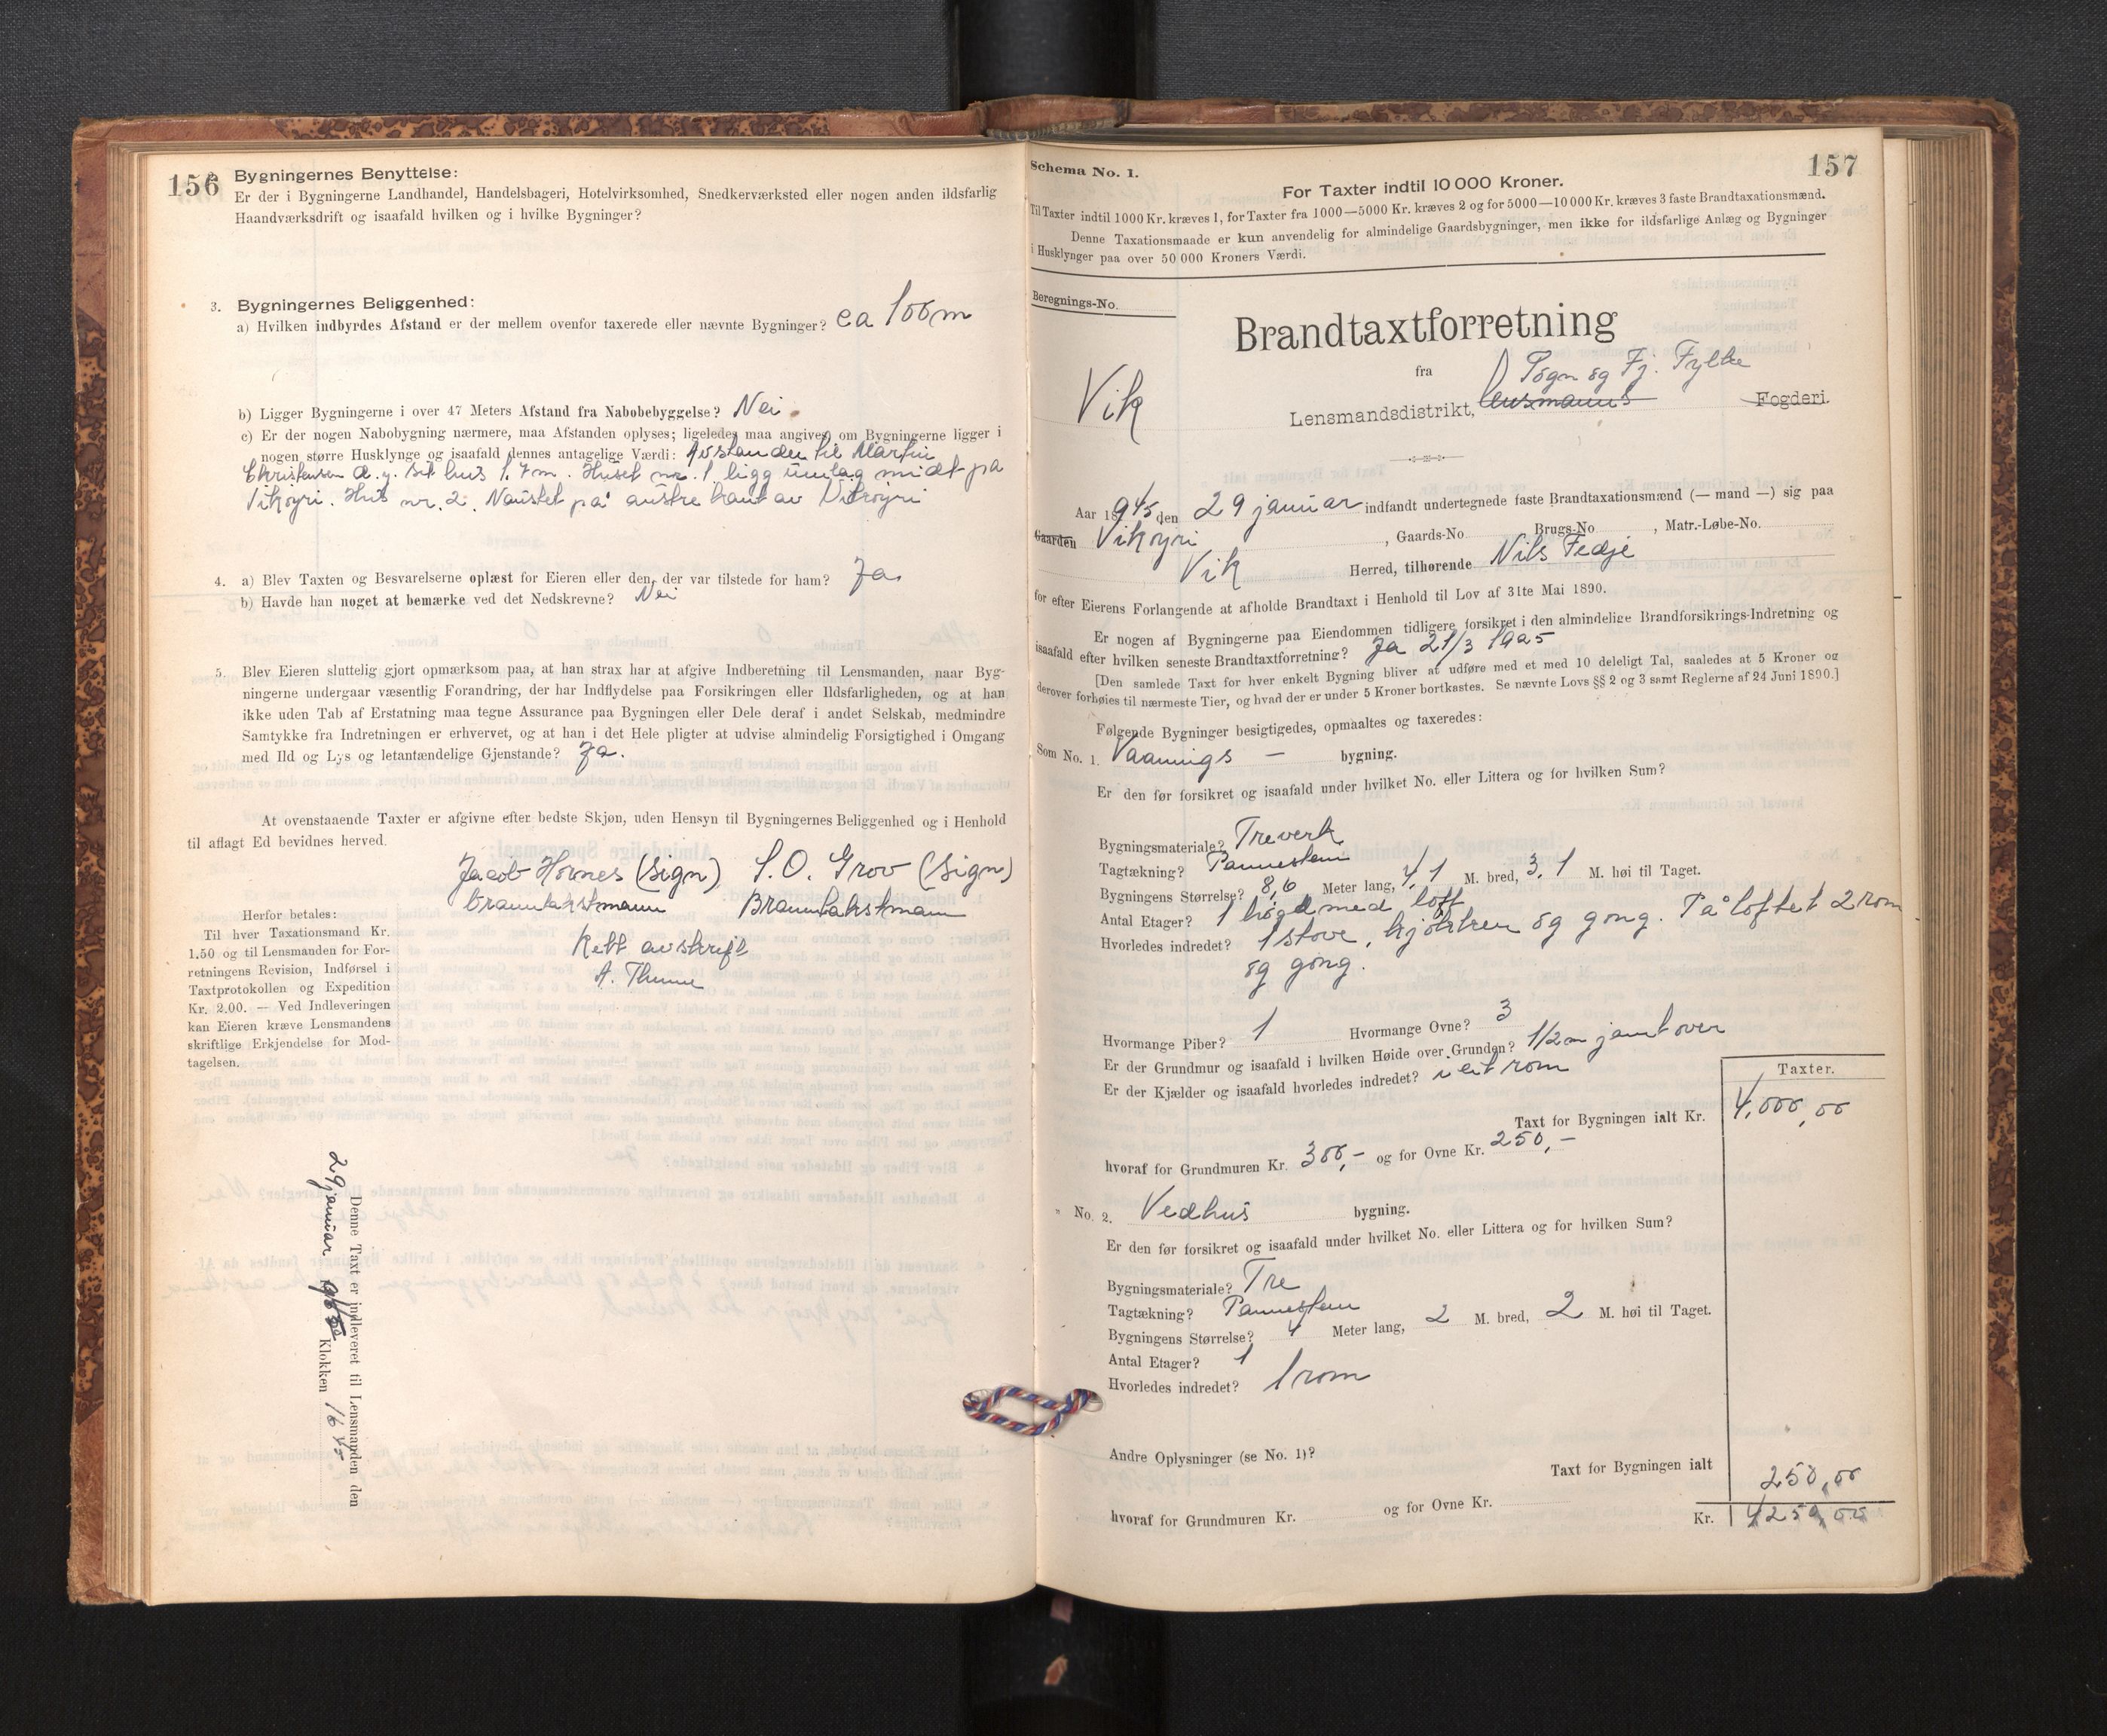 156
Bygningernes Benyttelse:
Er der i Bygningerne Landhandel, Handelsbageri, Hotelvirksomhed, Snedkerværksted eller nogen anden ildsfarlig
Haandværksdrift og isaafald hvilken og i hvilke Bygninger?
3. Bygningernes Beliggenhed:
a) Hvilken indbyrdes Afstand er der mellem ovenfor taxerede eller nævnte Bygninger? ca 100 m
b) Ligger Bygningerne i over 47 Meters Afstand fra Nabobebyggelse? Nei.
c) Er der nogen Nabobygning nærmere, maa Afstanden oplyses; ligeledes maa angives, om Bygningerne ligger i
nogen større Husklynge og isaafald dennes antagelige Værdi: Avstanden til Martin
Christensen d. y. sit hus 1.7 m. Huset nr. 1 ligg umlag midt på
Vikøyri. Hus nr. 2. Naustet på austre kant av Vikøyri
4. a) Blev Taxten og Besvarelserne oplæst for Eieren eller den, der var tilstede for ham? Ja.
b) Havde han noget at bemærke ved det Nedskrevne? Nei
5. Blev Eieren sluttelig gjort opmærksom paa, at han strax har at afgive Indberetning til Lensmanden, naar Byg-
ningerne undergaar væsentlig Forandring, der har Indflydelse paa Forsikringen eller Ildsfarligheden, og at han
ikke uden Tab af Erstatning maa tegne Assurance paa Bygningen eller Dele deraf i andet Selskab, medmindre
Samtykke fra Indretningen er erhvervet, og at han i det Hele pligter at udvise almindelig Forsigtighed i Omgang
med Ild og Lys og letantændelige Gjenstande? Ja.
At ovenstaaende Taxter er afgivne efter bedste Skjøn, uden Hensyn til Bygningernes Beliggenhed og i Henhold
til aflagt Ed bevidnes herved.
Jacob Hovnes (sign) S. O. Grov (sign)
branntakstmann Branntakstmann
Rett avskrift
A. Thune
Herfor betales:
Til hver Taxationsmand Kr.
1.50 og til Lensmanden for For-
retningens Revision, Indførsel i
Taxtprotokollen og Expedition
Kr. 2.00. — Ved Indleveringen
kan Eieren kræve Lensmandens
skriftlige Erkjendelse for Mod-
tagelsen.
Denne Taxt er indleveret til Lensmanden den
29 januar Klokken 16
157
Schema No. 1.
For Taxter indtil 10 000 Kroner.
Til Taxter indtil 1000 Kr. kræves 1, for Taxter fra 1000—5000 Kr. kræves 2 og for 5000—10 000 Kr. kræves 3 faste Brandtaxationsmænd.
Denne Taxationsmaade er kun anvendelig for almindelige Gaardsbygninger, men ikke for ildsfarlige Anlæg og Bygninger
i Husklynger paa over 50 000 Kroners Værdi.
Beregnings-No.
Brandtaxtforretning
fra Sogn og Fj. Fylke
Vik Lensmandsdistrikt, lensmanns Fogderi.
Aar 1945 den 29 januar indfandt undertegnede faste Brandtaxationsmænd (— mand —) sig paa
Gaarden Vikøyri , Gaards-No , Brugs-No , Matr.-Løbe-No.
Vik Herred, tilhørende Nils Fedje
for efter Eierens Forlangende at afholde Brandtaxt i Henhold til Lov af 31te Mai 1890.
Er nogen af Bygningerne paa Eiendommen tidligere forsikret i den almindelige Brandforsikrings-Indretning og
isaafald efter hvilken seneste Brandtaxtforretning? Ja 21/3 1925
[Den samlede Taxt for hver enkelt Bygning bliver at udføre med et med 10 deleligt Tal, saaledes at 5 Kroner og
derover forhøies til nærmeste Tier, og hvad der er under 5 Kroner bortkastes. Se nævnte Lovs §§ 2 og 3 samt Reglerne af 24 Juni 1890.]
Følgende Bygninger besigtigedes, opmaaltes og taxeredes:
Som No. 1. Vaanings — bygning.
Er den før forsikret og isaafald under hvilket No. eller Littera og for hvilken Sum?
Bygningsmateriale? Treverk
Tagtækning? Pannestein
Bygningens Størrelse? 8,6 Meter lang, 4,1 M. bred, 3,1 M. høi til Taget.
Antal Etager? 1 høgd med loft
Hvorledes indredet? 1 stove, kjøkken og gong. På loftet 2 rom
og gong.
Hvormange Piber? 1 Hvormange Ovne? 3
Er der Grundmur og isaafald i hvilken Høide over Grunden? 1/2 m jamt over
Er der Kjælder og isaafald hvorledes indredet? i eit rom
Taxter.
Taxt for Bygningen ialt Kr. 4.000,00
hvoraf for Grundmuren Kr. 300,- og for Ovne Kr. 250,-
" No. 2. Vedhus bygning.
Er den før forsikret og isaafald under hvilket No. eller Littera og for hvilken Sum?
Bygningsmateriale? Tre
Tagtækning? Pannestein
Bygningens Størrelse? 4 Meter lang, 2 M. bred, 2 M. høi til Taget.
Antal Etager? 1
Hvorledes indredet? 1 rom
Andre Oplysninger (se No. 1)?
Taxt for Bygningen ialt 250,00
hvoraf for Grundmuren Kr. og for Ovne Kr.
Kr. 4250,00